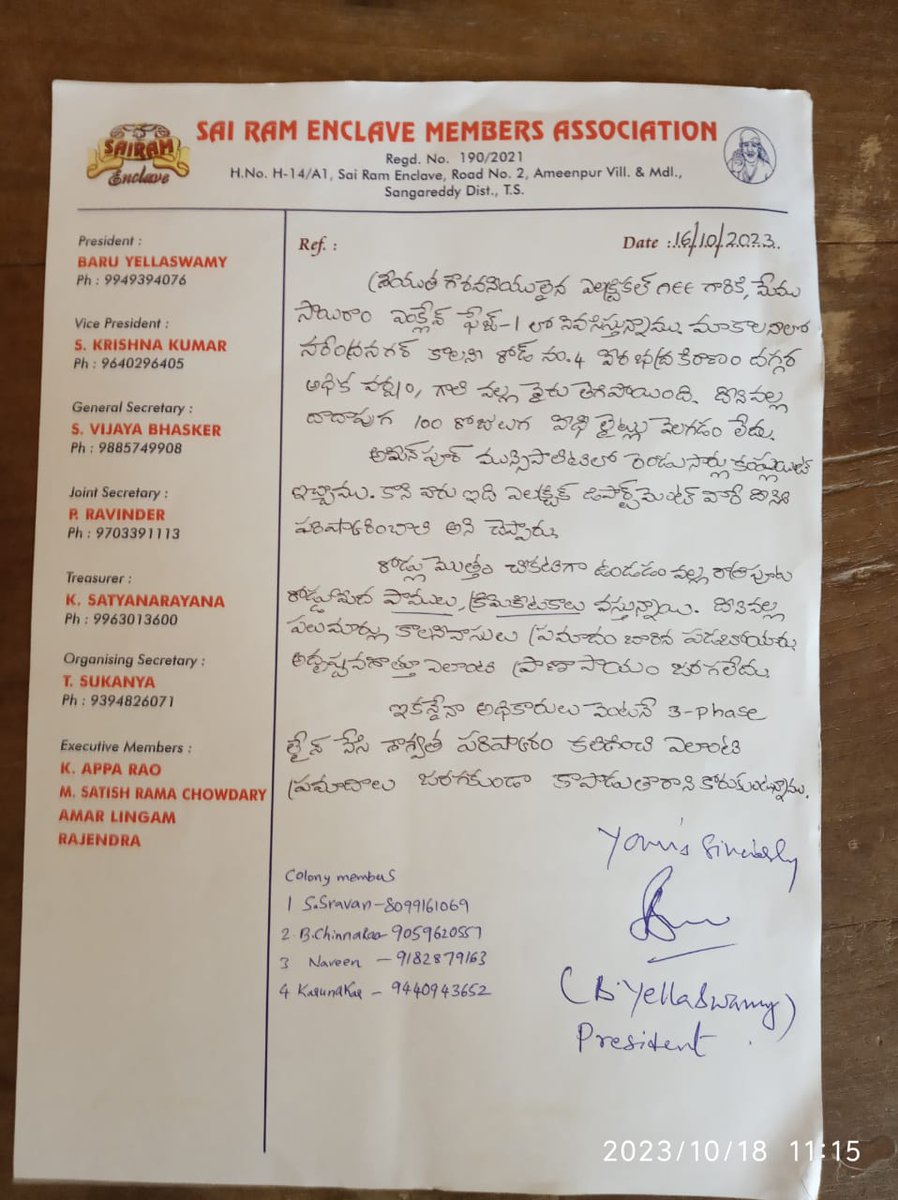 SAIRAM
Enclave
SAI RAM ENCLAVE MEMBERS ASSOCIATION
Regd. No. 190/2021
H.No. H-14/A1, Sai Ram Enclave, Road No. 2, Ameenpur Vill. & Mdl.,
Sangareddy Dist., T.S.
President :
BARU YELLASWAMY
Ph : 9949394076
Vice President :
S. KRISHNA KUMAR
Ph : 9640296405
General Secretary :
S. VIJAYA BHASKER
Ph : 9885749908
Joint Secretary :
P. RAVINDER
Ph : 9703391113
Treasurer :
K. SATYANARAYANA
Ph : 9963013600
Organising Secretary :
T. SUKANYA
Ph : 9394826071
Executive Members :
K. APPA RAO
M. SATISH RAMA CHOWDARY
AMAR LINGAM
RAJENDRA
Ref. :
Date : 16/10/2023.
శ్రీయుత గౌరవనీయులైన ఎలక్ట్రికల్ గారికి, మేము
సాయిరాం ఎంక్లేవ్ ఫేజ్-1 లో నివసిస్తున్నాము. మాకాలనీలో
నరేంద్రనగర్ కాలని రోడ్ నం.4 వీరభద్ర కిరాణం దగ్గర
అధిక వర్షం, గాలి వల్ల వైరు తెగిపోయింది. దీనివల్ల
దాదాపుగ 100 రోజులుగ వీధి లైట్లు వెలగడం లేదు.
అమీన్ పూర్ మున్సిపాలిటిలో రెండుసార్లు కంప్లయింట్
ఇచ్చాము. కాని వారు ఇది ఎలక్ట్రిక్ డిపార్ట్‌మెంట్ వారే దీనిని
పరిష్కరించాలి అని చెప్పారు.
రోడ్లు మొత్తం చీకటిగా ఉండడం వల్ల రాత్రిపూట
రోడ్డుమీద పాములు, క్రిమికీటకాలు వస్తున్నాయి. దీనివల్ల
పలుమార్లు కాలనివాసులు ప్రమాదం బారిన పడబోయారు.
అదృష్టవశాత్తూ ఎలాంటి ప్రాణాపాయం జరగలేదు.
ఇకనైనా అధికారులు వెంటనే 3-phase
లైన్ వేసి శాశ్వత పరిష్కారం కలిగించి ఎలాంటి
ప్రమాదాలు జరగకుండా కాపాడుతారాని కోరుకుంటున్నాము.
Your's Sincerely
(B. Yellaswamy)
President
Colony members
1 S.Sravan-8099161069
2 B.Chinnarao-9059620557
3 Naveen - 9182879163
4 Karunakar - 9440943652
2023/10/18 11:15